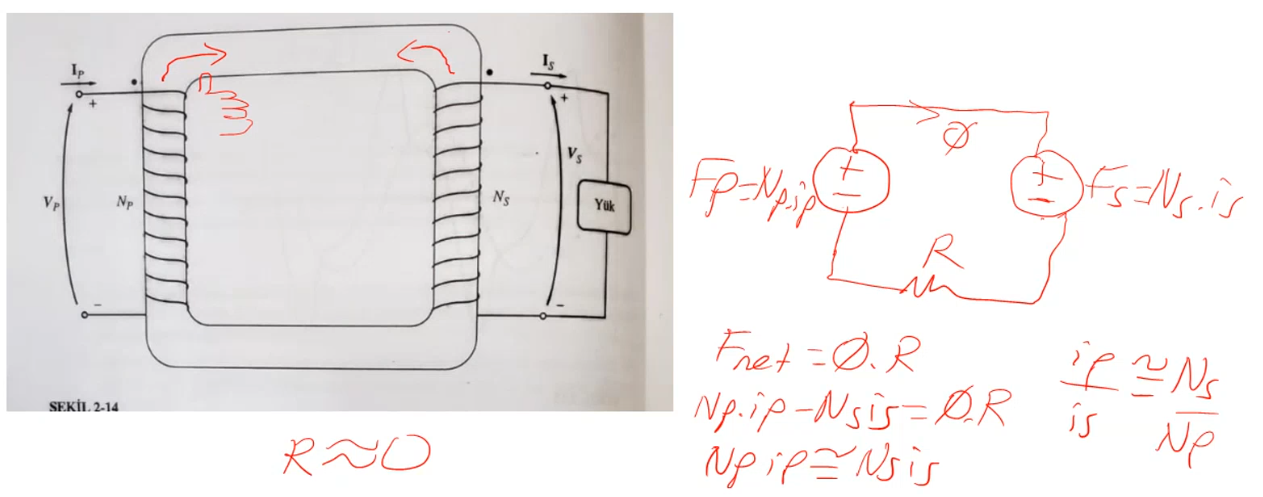 I_P
I_S
+
+
V_P
N_P
N_S
V_S
Yük
–
–
ŞEKİL 2-14
R≈0
Ø
+
–
+
–
Fp=Np.ip
Fs=Ns.is
R
Fnet=Ø.R
Np.ip-Nsis=Ø.R
Npip≅Nsis
ip/is≅Ns/Np